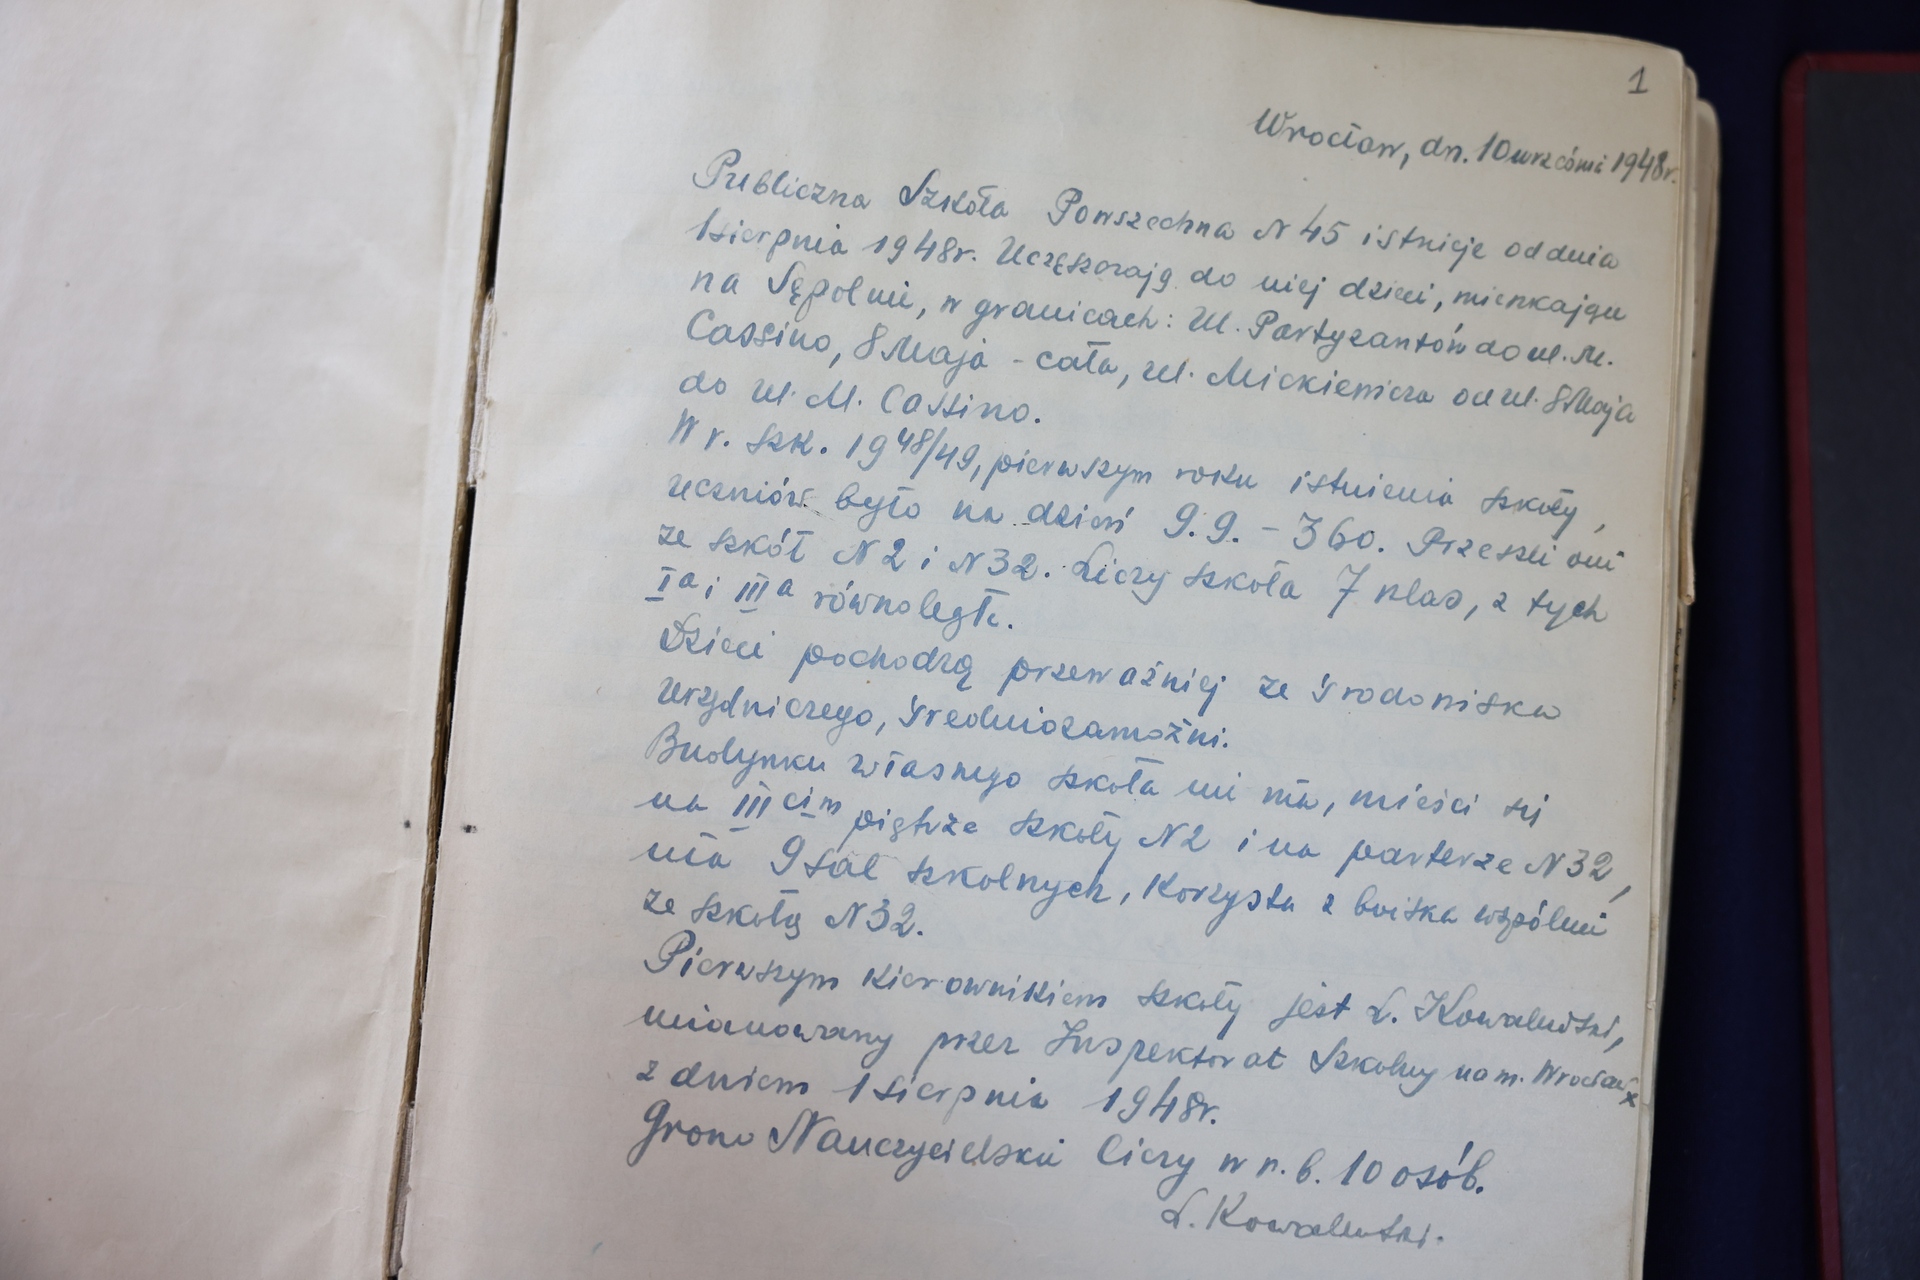 1
Wrocław, dn. 10 września 1948r.
Publiczna Szkoła Powszechna N 45 istnieje od dnia
1 sierpnia 1948r. Uczęszczają do niej dzieci, mieszkające
na Sępolnie, w granicach: ul. Partyzantów do ul. M.
Cassino, 8 Maja - cała, ul. Mickiewicza od ul. 8 Maja
do ul. M. Cassino.
W r. szk. 1948/49, pierwszym roku istnienia szkoły,
uczniów było na dzień 9.9. - 360. Przeszli oni
ze szkół N 2 i N 32. Liczy szkoła 7 klas, z tych
Ia i IIIa równoległe.
Dzieci pochodzą przeważniej ze środowiska
urzędniczego, średniozamożni.
Budynku własnego szkoła nie ma, mieści się
na IIIcim piętrze szkoły N 2 i na parterze N 32,
ma 9 sal szkolnych, korzysta z boiska wspólnie
ze szkołą N 32.
Pierwszym kierownikiem szkoły jest L.
mianowany przez Inspektorat Szkolny na m. Wrocław
z dniem 1 sierpnia 1948r.
Grono Nauczycielskie liczy w r. b. 10 osób.
L.